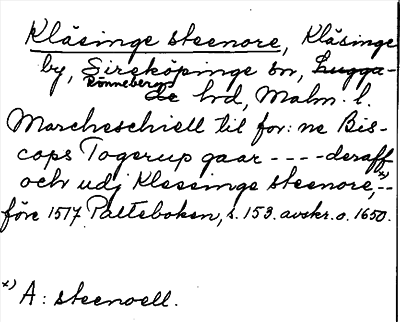 Kläsinge steenore, Kläsinge
by, Sireköpinge sn, Lugga-
Rönnebergs
de hrd, Malm. l.
Marcheschiell til for: ne Bis-
cops Togerup gaar - - - - deraff
och udj Klessinge steenore, x) --
före 1517 Palteboken, s. 153. avskr. o. 1650.
x) A: steenoell.